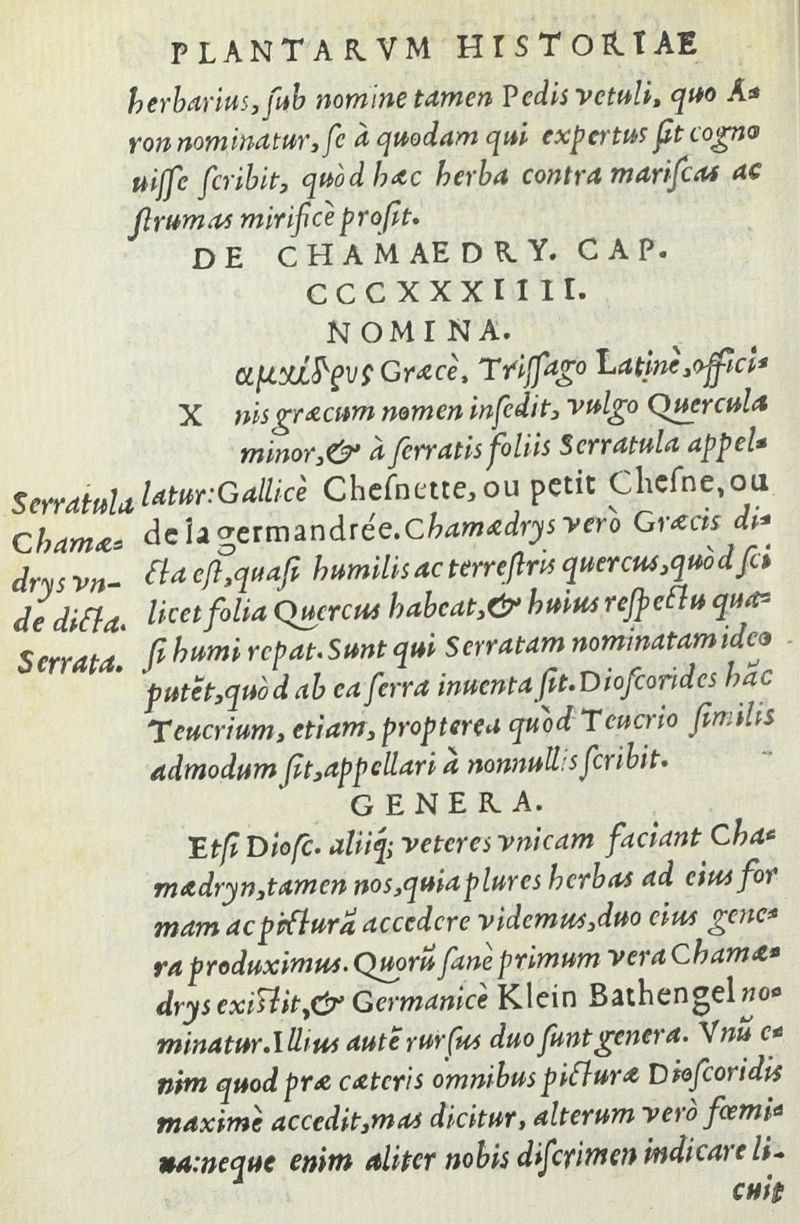 PLANTARVM HISTORIAE
herbarius, ſub nomine tamen Pedis vetuli, quo A-
ron nominatur, ſe à quodam qui expertus ſit cogno
uiſſe ſcribit, quòd hæc herba contra mariſcas ac
ſtrumas mirificè profit.
DE CHAMAEDRY. CAP.
CCCXXXIIII.
NOMINA.
αμχίδρυς Græcè, Triſſago Latinè, offici-
X nis græcum nomen inſedit, vulgo Quercula
minor, & à ſerratis foliis Serratula appel-
latur: Gallicè Cheſnette, ou petit Cheſne, ou
de la germandrée. Chamædrys verò Græcis di-
cta eſt, quaſi humilis ac terreſtris quercus, quòd ſci
licet folia Quercus habeat, & huius reſpectu qua-
ſi humi repat. Sunt qui Serratam nominatam ideo
putēt, quòd ab ea ſerra inuenta ſit. Dioſcorides hāc
Teucrium, etiam, propterea quòd Teucrio ſimilis
admodum ſit, appellari à nonnullis ſcribit.
Serratula
Chamæ-
drys vn-
de dicta.
Serrata.
GENERA.
Etſi Dioſc. aliiq́; veteres vnicam faciant Cha-
mædryn, tamen nos, quia plures herbas ad eius for
mam ac picturā accedere videmus, duo eius gene-
ra produximus. Quorū ſanè primum vera Chamæ-
drys exiſtit, & Germanicè Klein Bathengel no-
minatur. Illius autē rurſus duo ſunt genera. Vnū e-
nim quod præ cæteris omnibus picturæ Dioſcoridis
maximè accedit, mas dicitur, alterum verò fœmi-
na: neque enim aliter nobis diſcrimen indicare li-
cuit